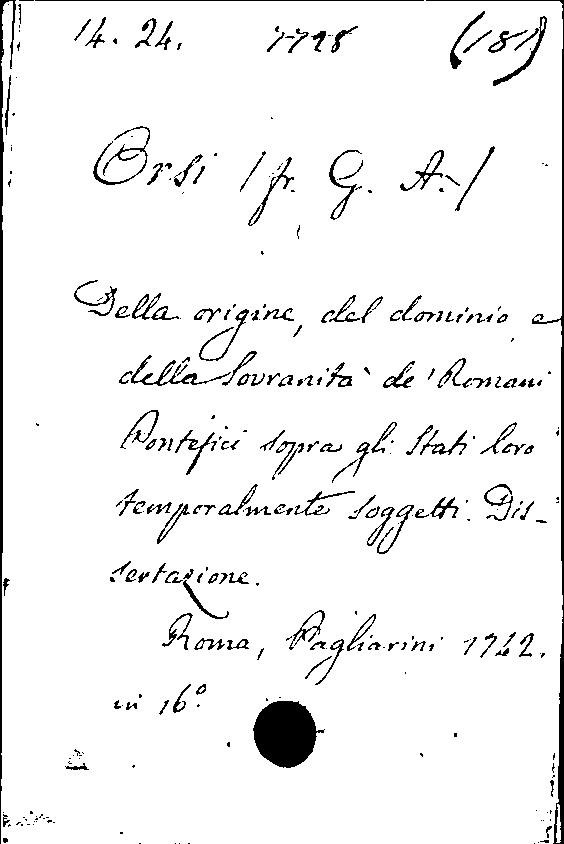 14. 24. 7798 (181)
Orsi /fr. G. A./
Della origine, del dominio e
della Sovranità de' Romani
Pontefici sopra gli Stati loro
temporalmente soggetti. Dis-
sertazione.
Roma, Pagliarini 1742.
in 16°.